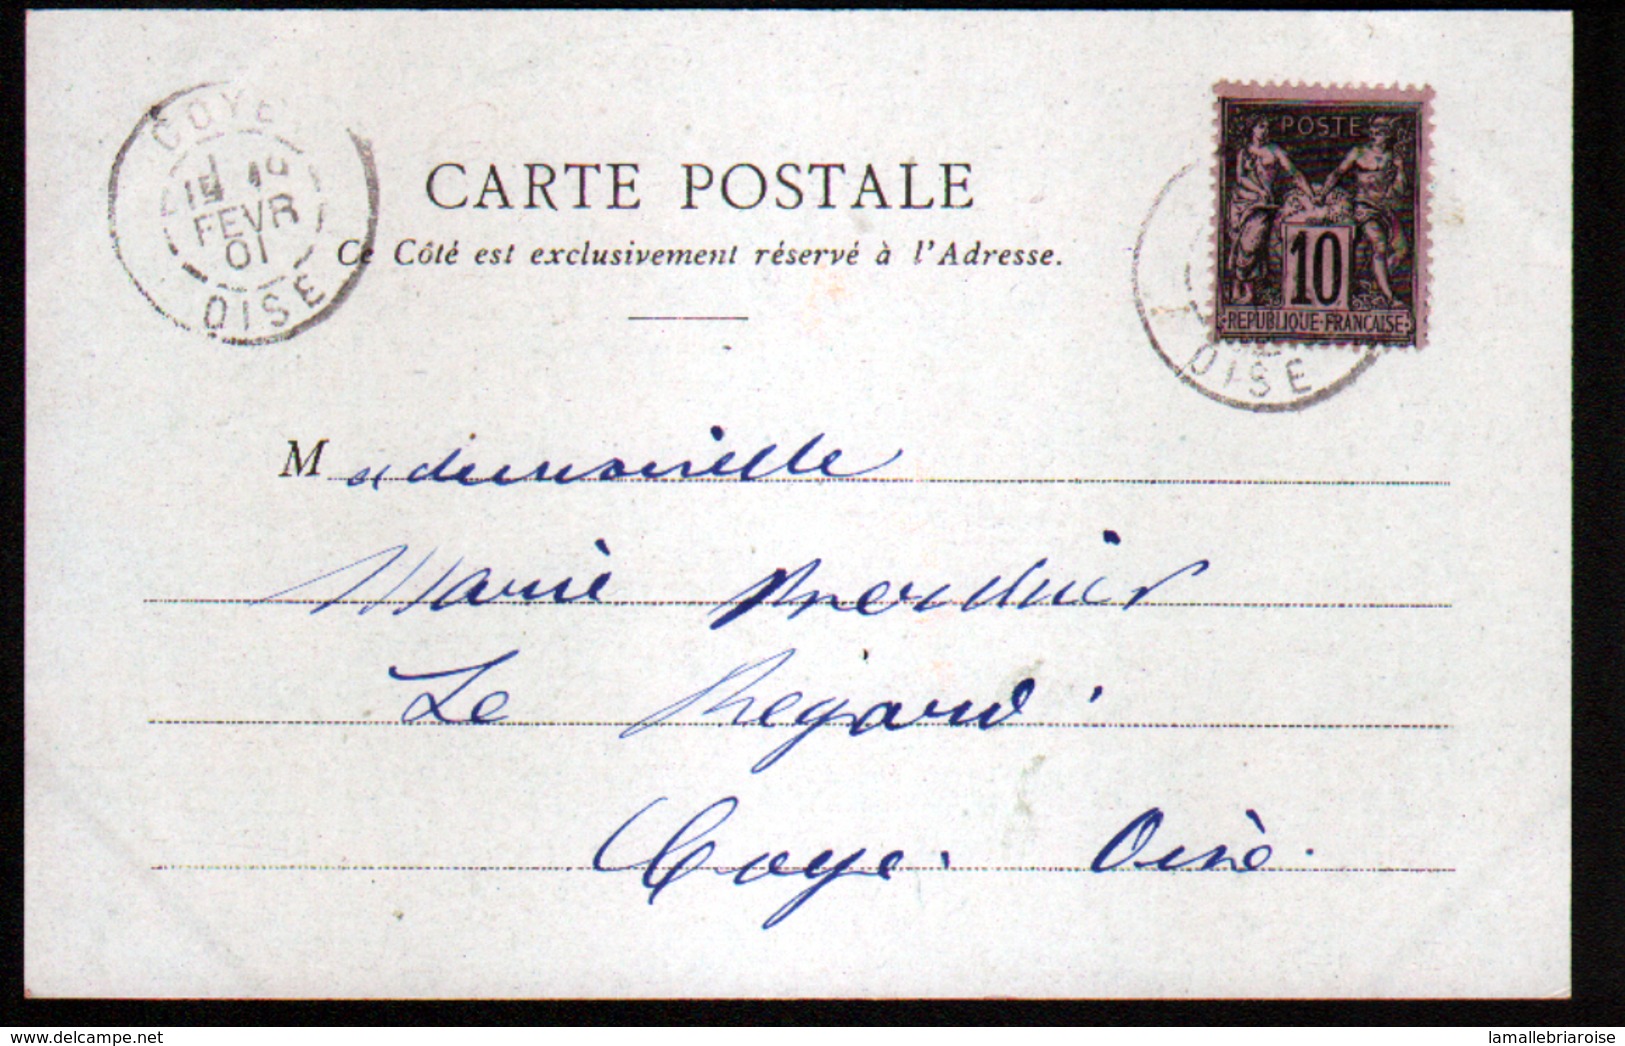 COYE
FEVR
01
OISE
CARTE POSTALE
Ce Côté est exclusivement réservé à l'Adresse.
POSTE
10
REPUBLIQUE·FRANCAISE
OISE
Mademoiselle
Marie
Le Regard
Coye. Oise.
delcampe.net
lamallebriaroise